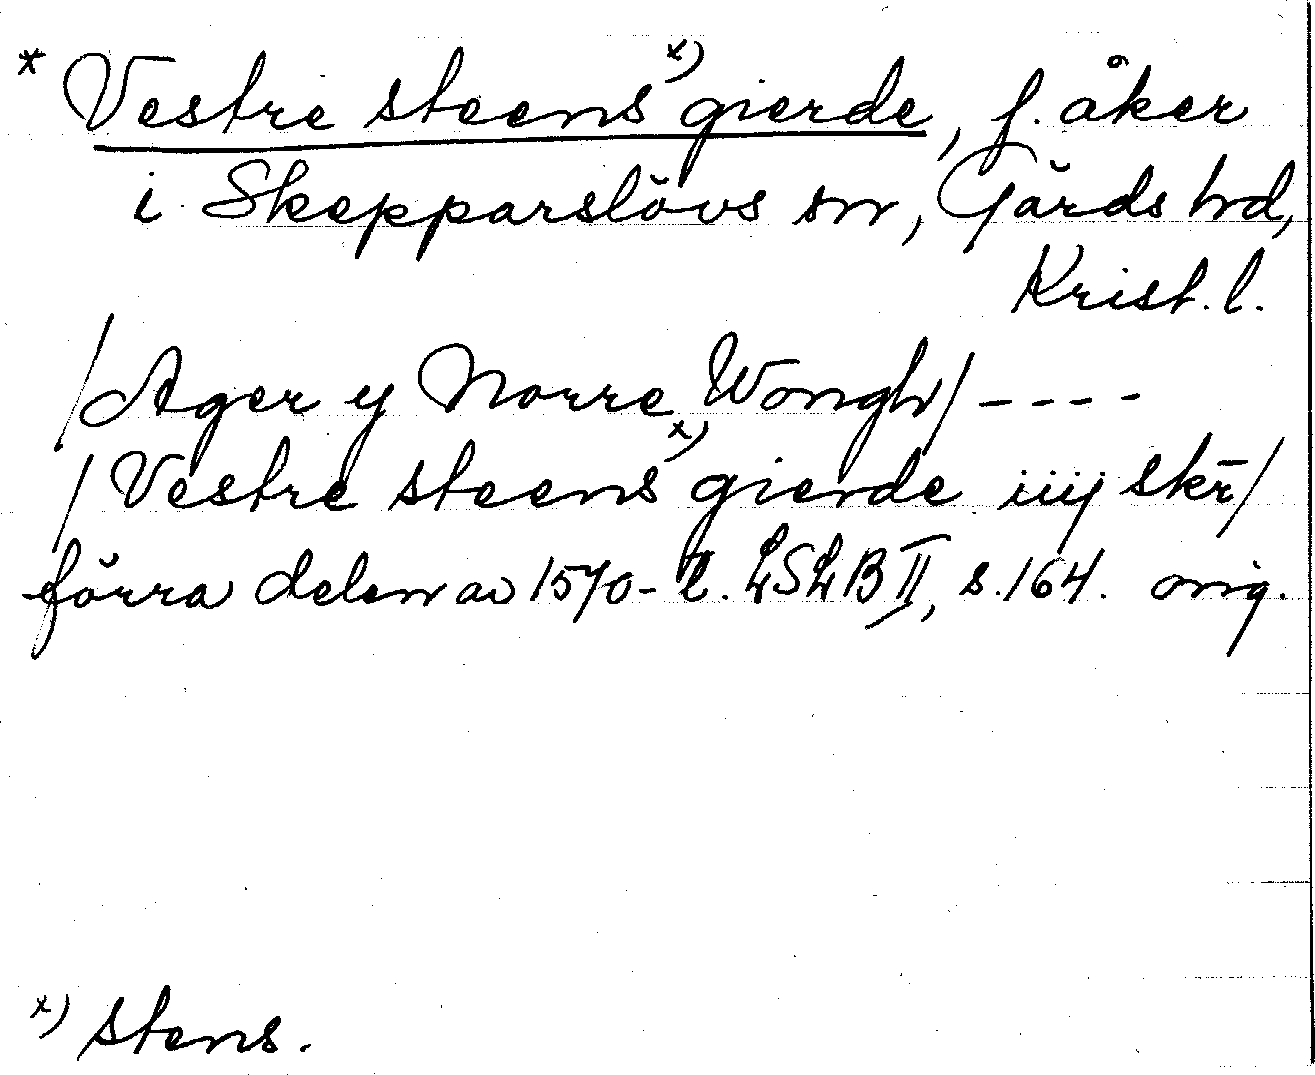 * Vestre steens x) gierde, f. åker
i Skepparslövs sn, Gärds hd,
Krist. l.
/Ager y Norre Wongh/ ----
/Vestre steens x) gierde iiij skr̄/
förra delen av 1570-t. LSLB II, s. 164. orig.
x) stens.